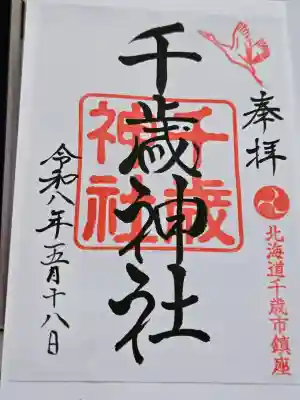 奉拝
北海道千歳市鎮座
千歳神社
千歳
神社
令和八年五月十八日